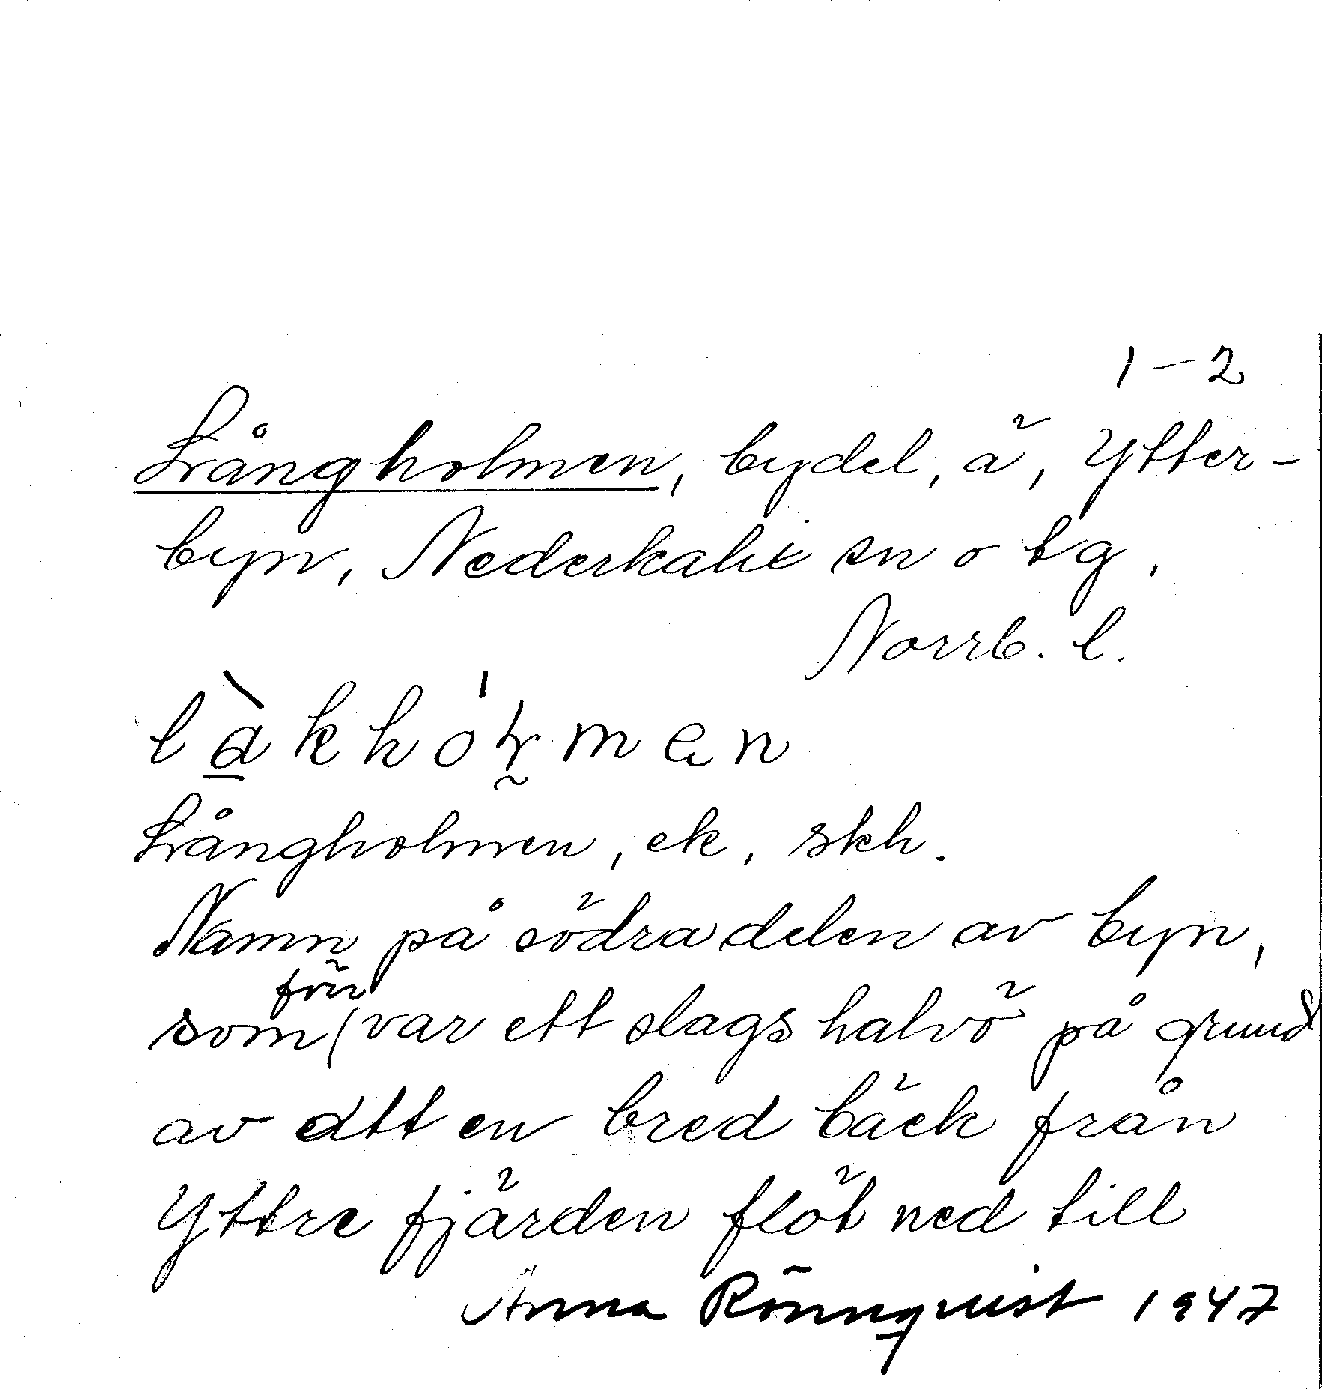 1-2
Långholmen, bydel, ä, Ytter-
byn, Nederkalix sn o tg,
Norrb. l.
Långholmen, ek, skh.
Namn på södra delen av byn,
förr
som (var ett slags halvö på grund
av att en bred bäck från
Yttre fjärden flöt ned till
Anna Rönnquist 1947